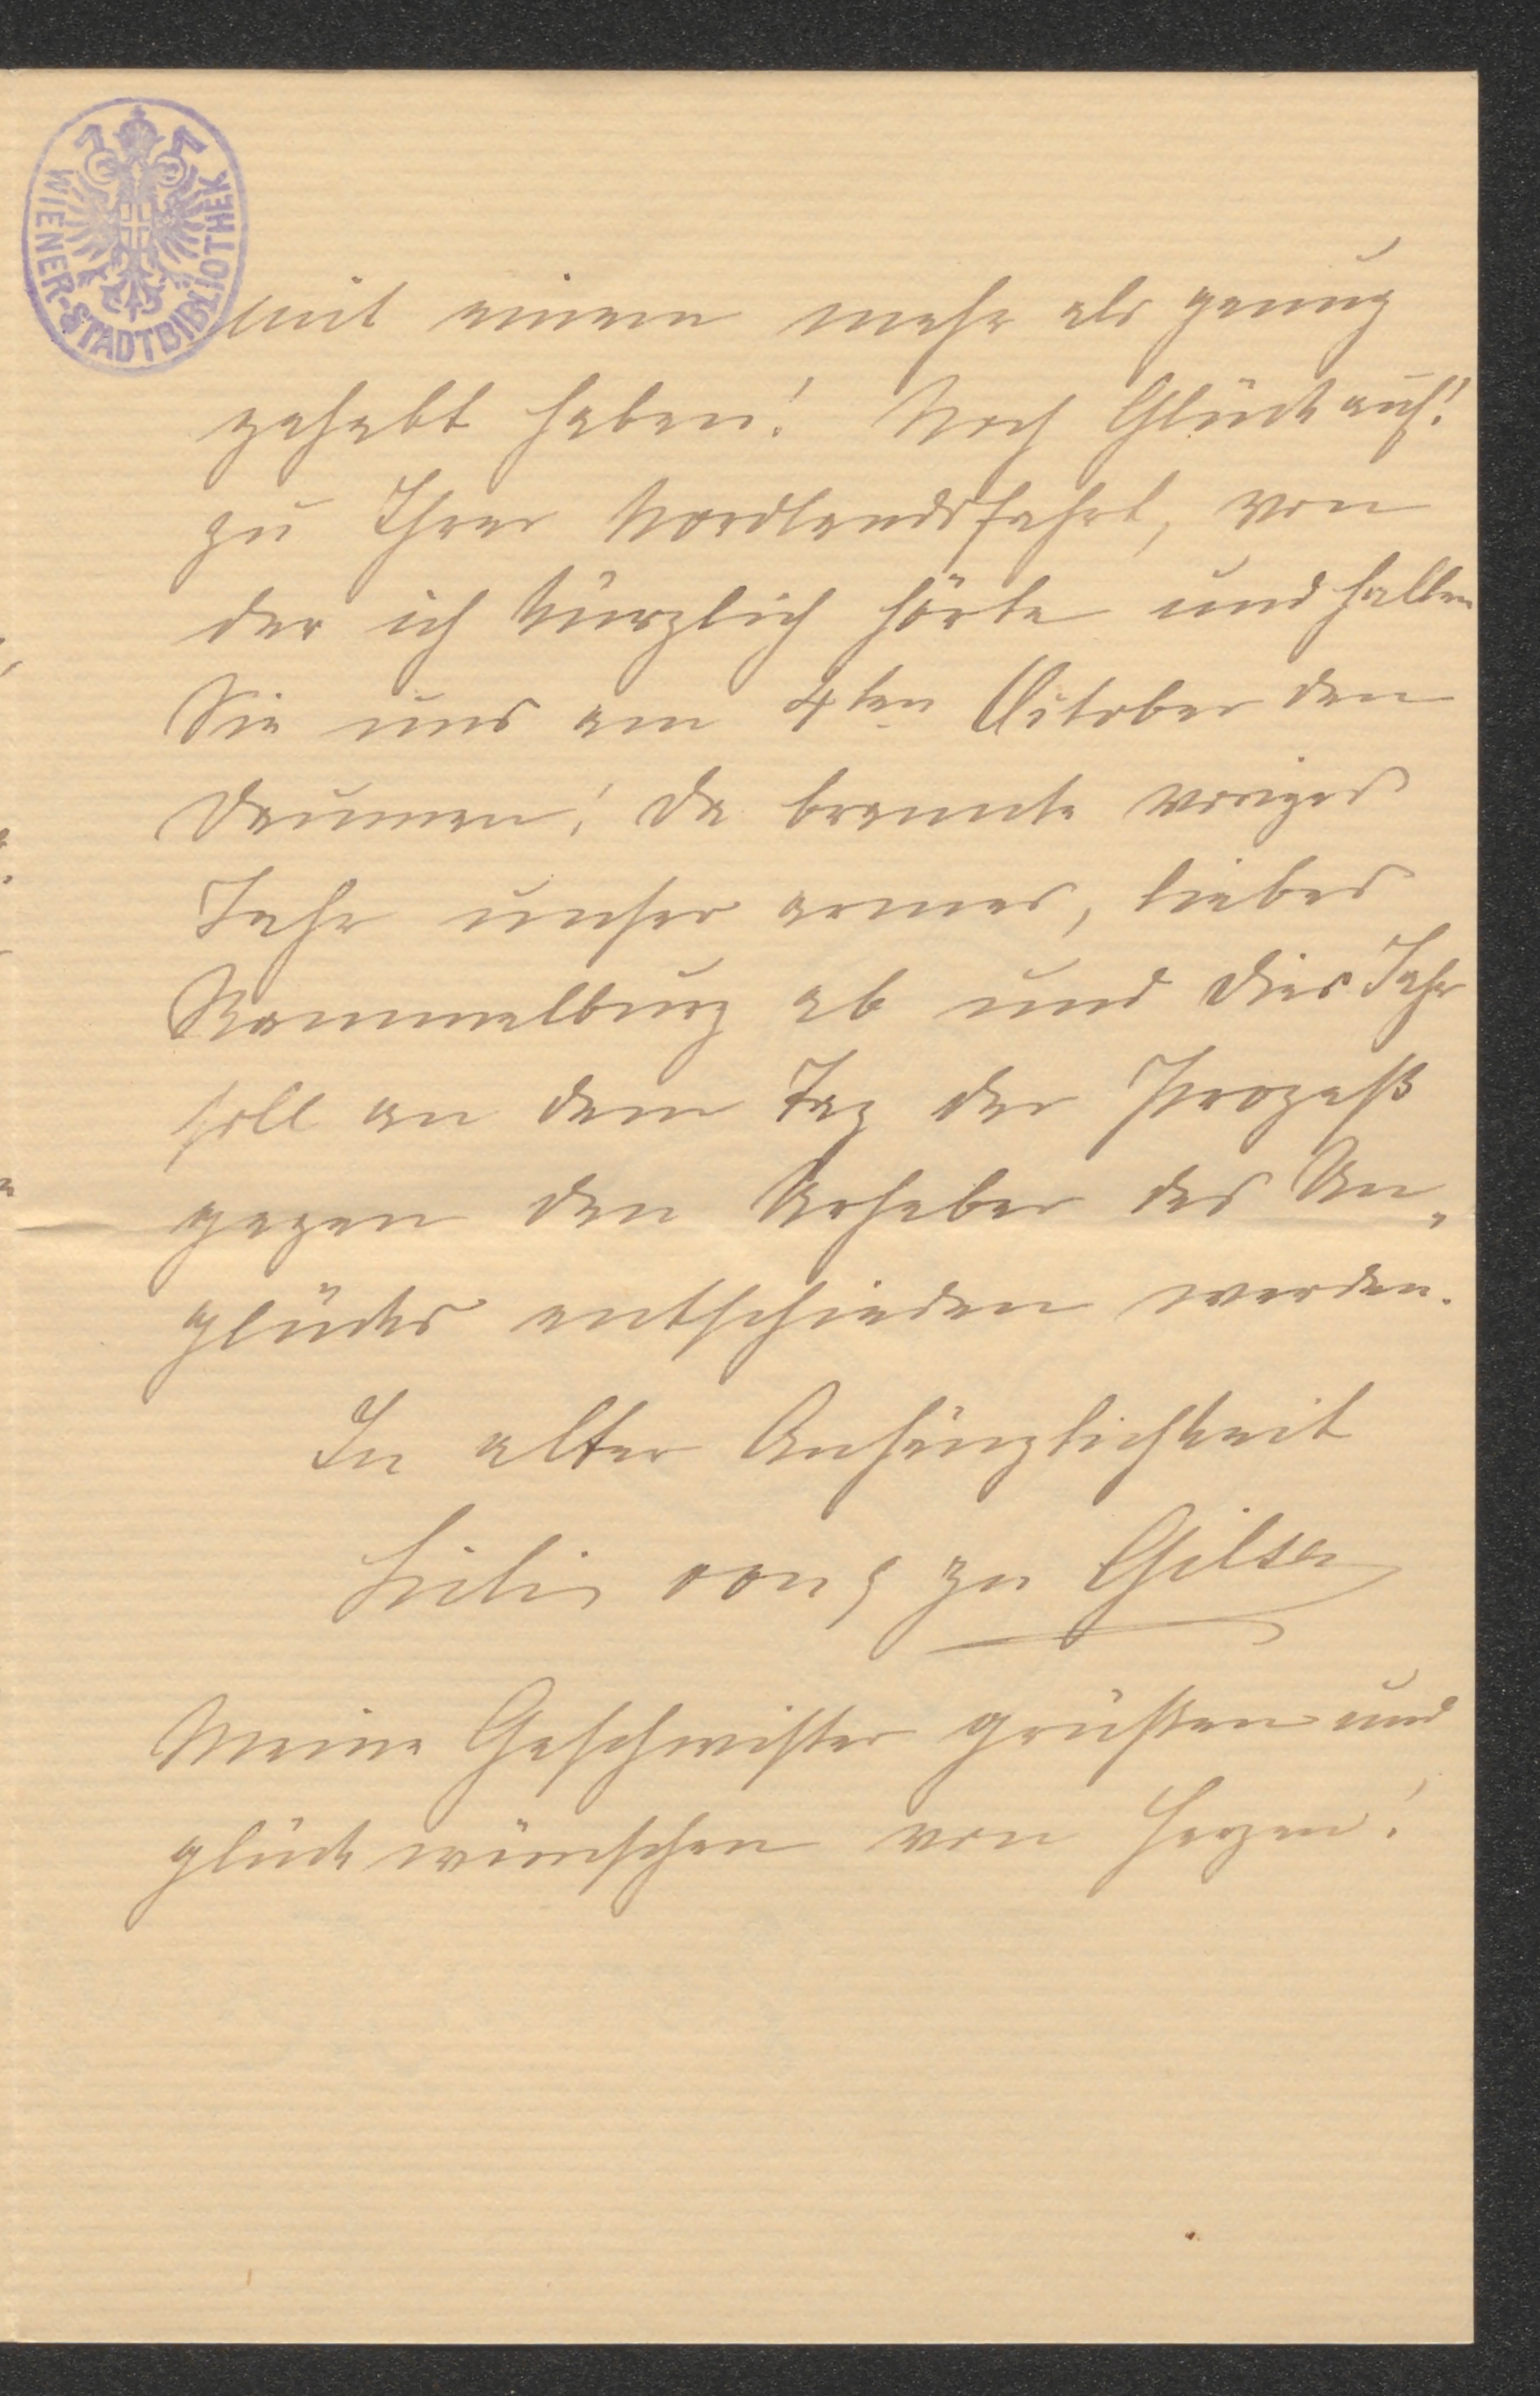 WIENER-STADTBIBLIOTHEK
mit einem mehr als genug
gehabt haben! Noch Glück auf!
zu Ihrer Nordlandsfahrt, von
der ich kürzlich hörte und halten
Sie uns am 4ten October den
Daumen! Da brannte voriges
Jahr unser armes, liebes
Rammelburg ab und dies Jahr
soll an dem Tag der Prozeß
gegen den Urheber des Un„
glücks entschieden werden.
In alter Anhänglichkeit
von & zu Gilsa
Meine Geschwister grüßen und
glückwünschen von Herzen!